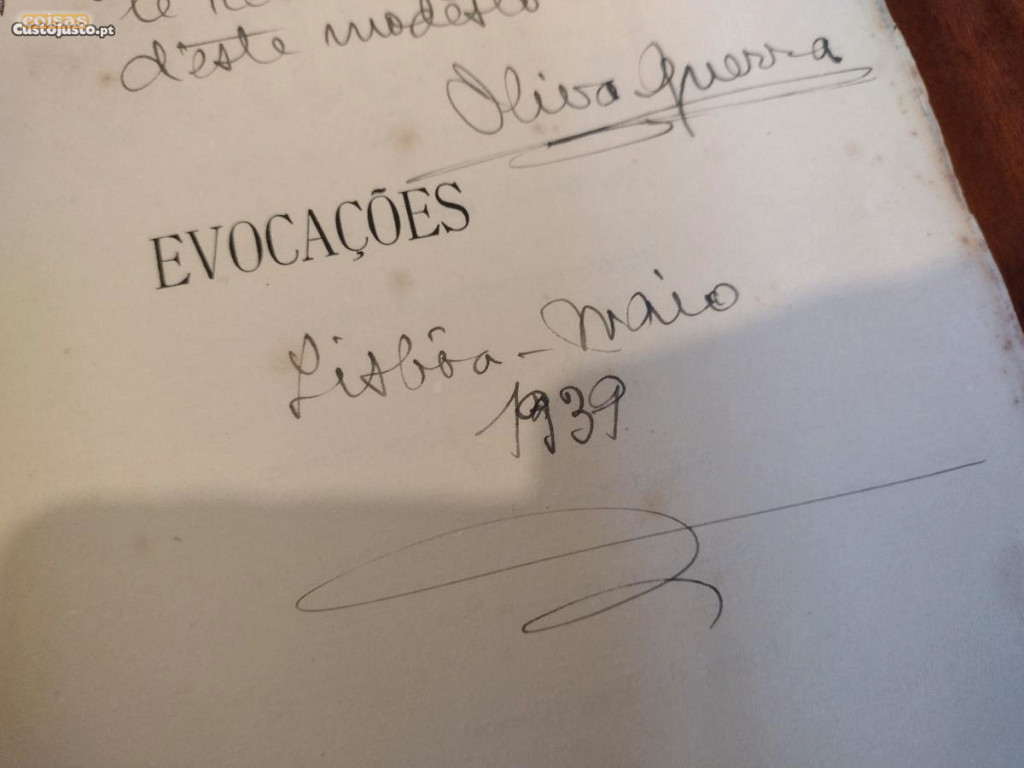 coisas
Custojusto.pt
d'éste modésto
Oliva Guerra
EVOCAÇÕES
Lisbôa - Maio
1939